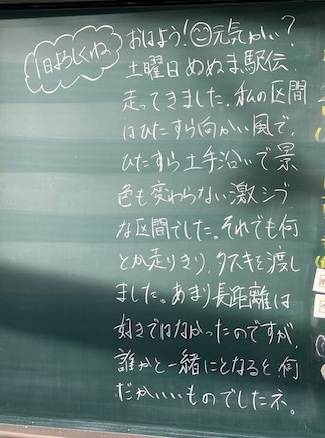 1日よろしくね
おはよう!元気かい?
土曜日めぬま駅伝、
走ってきました。私の区間
はひたすら向かい風で、
ひたすら土手沿いで景
色も変わらない激シブ
な区間でした。それでも何
とか走りきり、タスキを渡し
ました。あまり長距離は
好きではなかったのですが、
誰かと一緒にとなると何
だかいいものでしたネ。